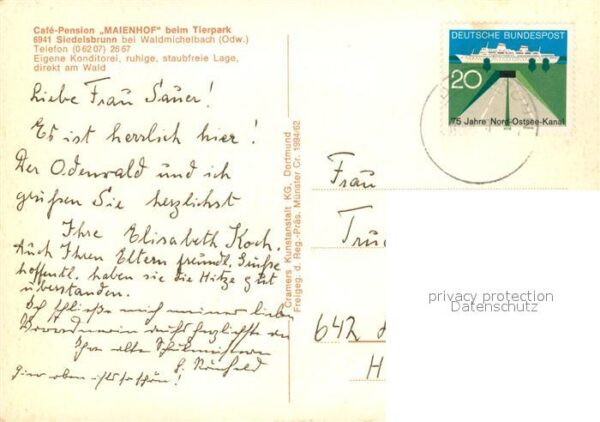 Café-Pension „MAIENHOF" beim Tierpark
6941 Siedelsbrunn bei Waldmichelbach (Odw.)
Telefon (06207) 2667
Eigene Konditorei, ruhige, staubfreie Lage,
direkt am Wald
Liebe Frau Sauer!
Es ist herrlich hier!
Der Odenwald und ich
grüßen Sie herzlichst
Ihre Elisabeth Koch.
Auch Ihren Eltern freundl. Grüße
hoffentl. haben sie die Hitze gut
überstanden.
Ich schließe mich meiner lieben
Ihre alte
hier oben ists so schön!
Cramers Kunstanstalt KG, Dortmund
Freigeg. d. Reg.-Präs. Münster Cr. 1994/62
DEUTSCHE BUNDESPOST
20
75 Jahre Nord-Ostsee-Kanal
Frau
642
H
privacy protection
Datenschutz